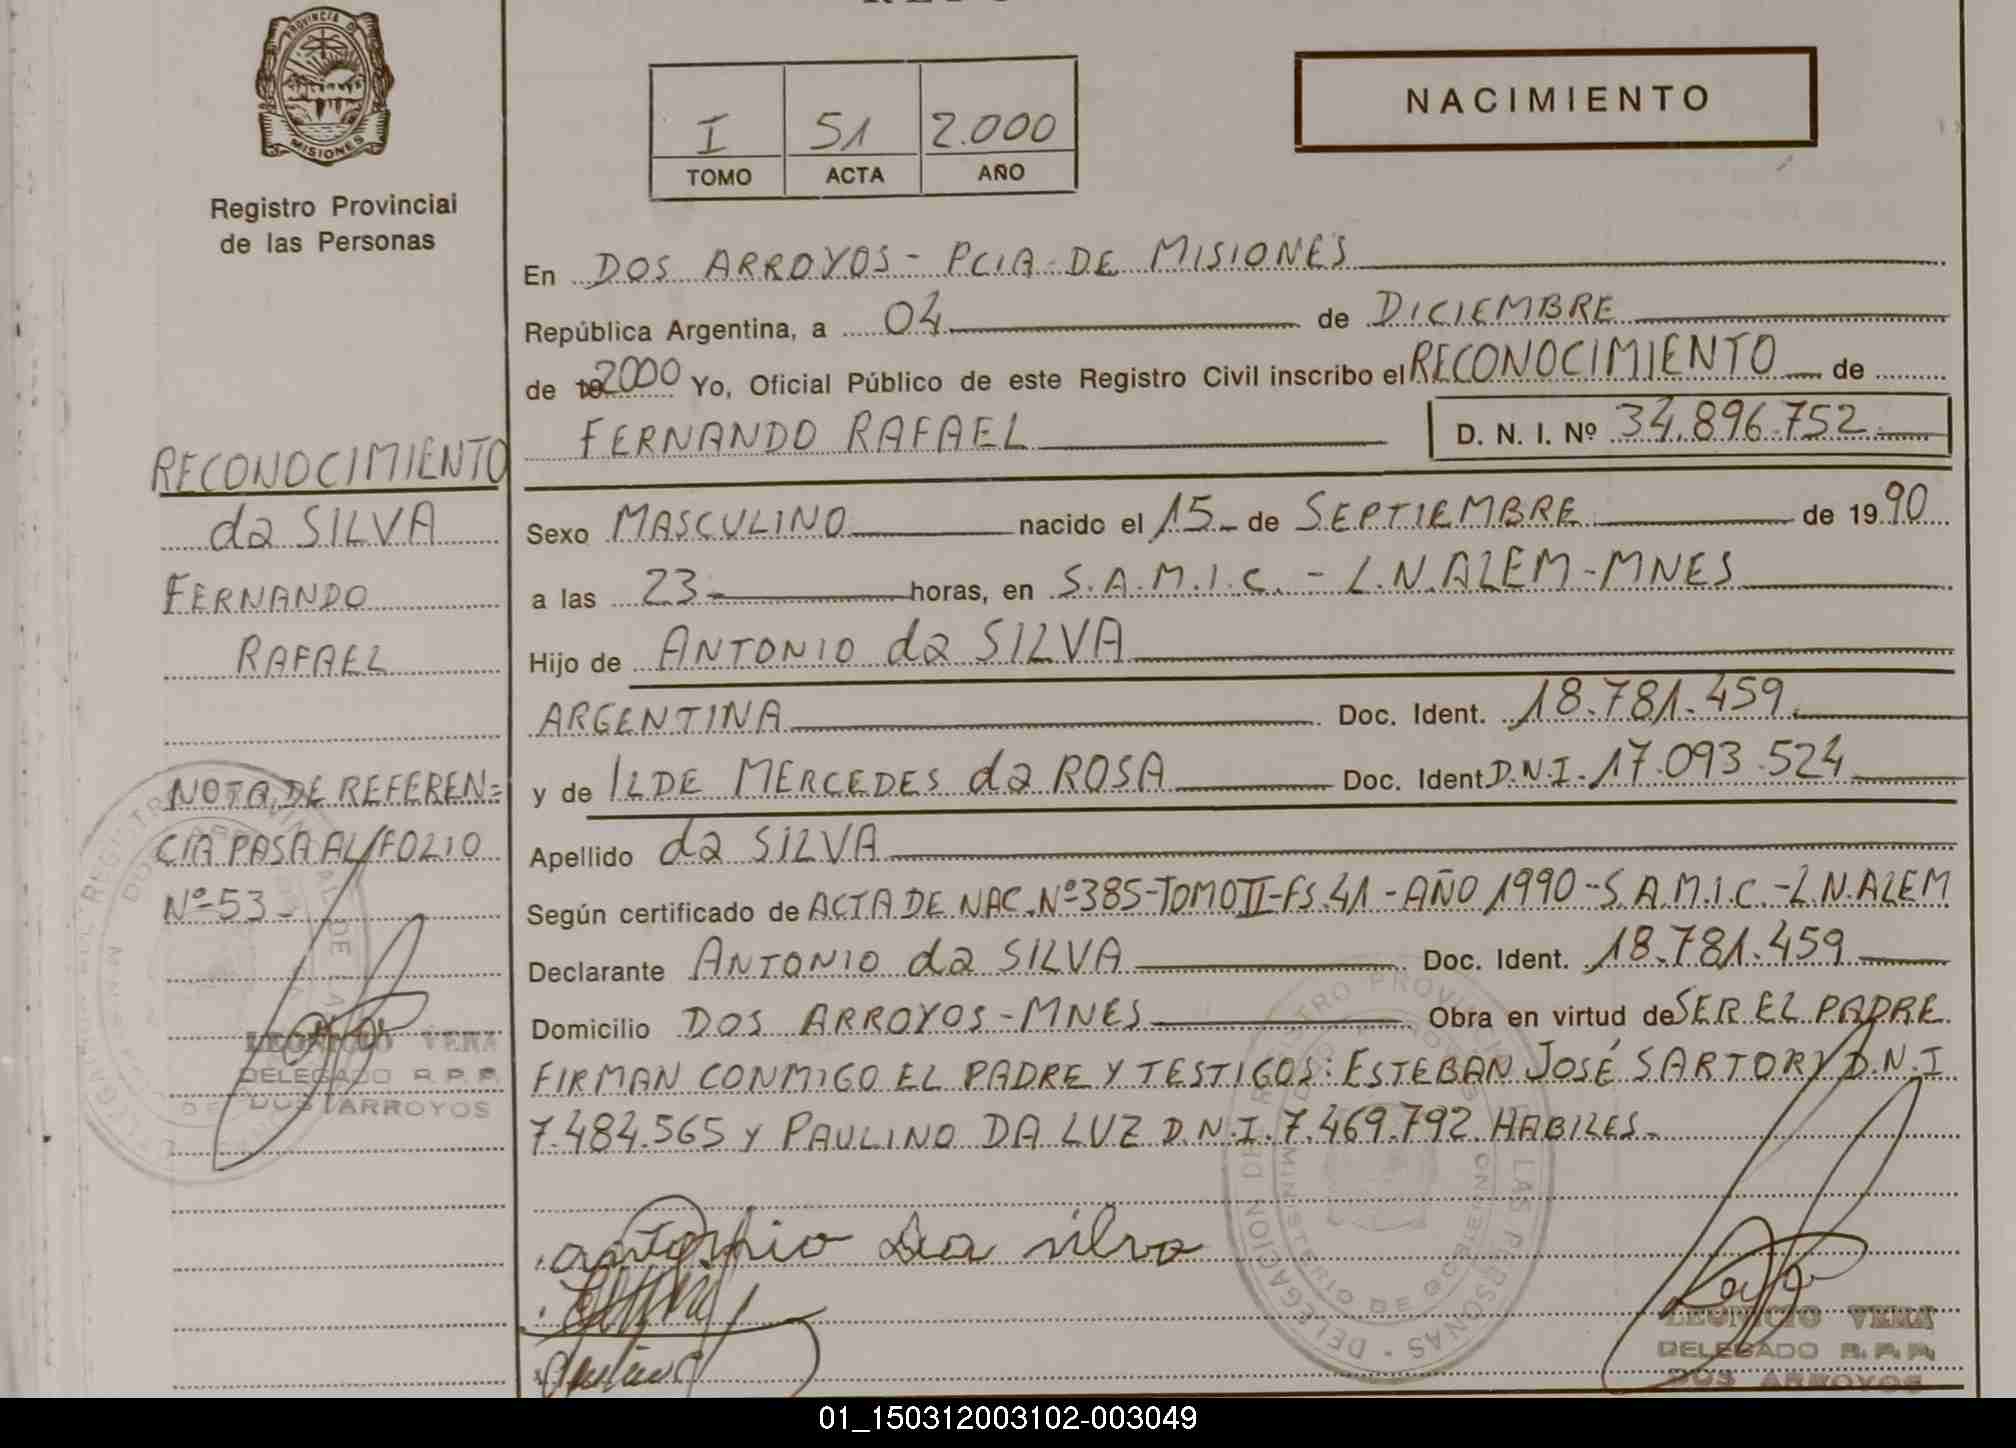 PROVINCIA D
MISIONES
Registro Provincial
de las Personas
I 51 2.000
TOMO ACTA AÑO
NACIMIENTO
En DOS ARROYOS - PCIA DE MISIONES
República Argentina, a 04 de DICIEMBRE
de 19 2000 Yo, Oficial Público de este Registro Civil inscribo el RECONOCIMIENTO de
FERNANDO RAFAEL D. N. I. Nº 34.896.752
Sexo MASCULINO nacido el 15 de SEPTIEMBRE de 1990
a las 23 horas, en S.A.M.I.C. - L.N.ALEM-MNES
Hijo de ANTONIO da SILVA
ARGENTINA Doc. Ident. 18.781.459
y de ILDE MERCEDES da ROSA Doc. Ident D.N.I. 17.093.524
Apellido da SILVA
Según certificado de ACTA DE NAC. Nº 385-TOMO II-FS.41-AÑO 1990-S.A.M.I.C.-L.N.ALEM
Declarante ANTONIO da SILVA Doc. Ident. 18.781.459
Domicilio DOS ARROYOS-MNES Obra en virtud de SER EL PADRE
FIRMAN CONMIGO EL PADRE Y TESTIGOS: ESTEBAN JOSÉ SARTORI D.N.I
7.484.565 Y PAULINO DA LUZ D.N.I. 7.469.792. HABILES-
Antonio Da silva
LEONICIO VERA
DELEGADO R.P.P.
DOS ARROYOS
RECONOCIMIENTO
da SILVA
FERNANDO
RAFAEL
NOTA DE REFEREN=
CIA PASA AL FOLIO
Nº 53-
LEONICIO VERA
DELEGADO R.P.P.
DOS ARROYOS
01_150312003102-003049